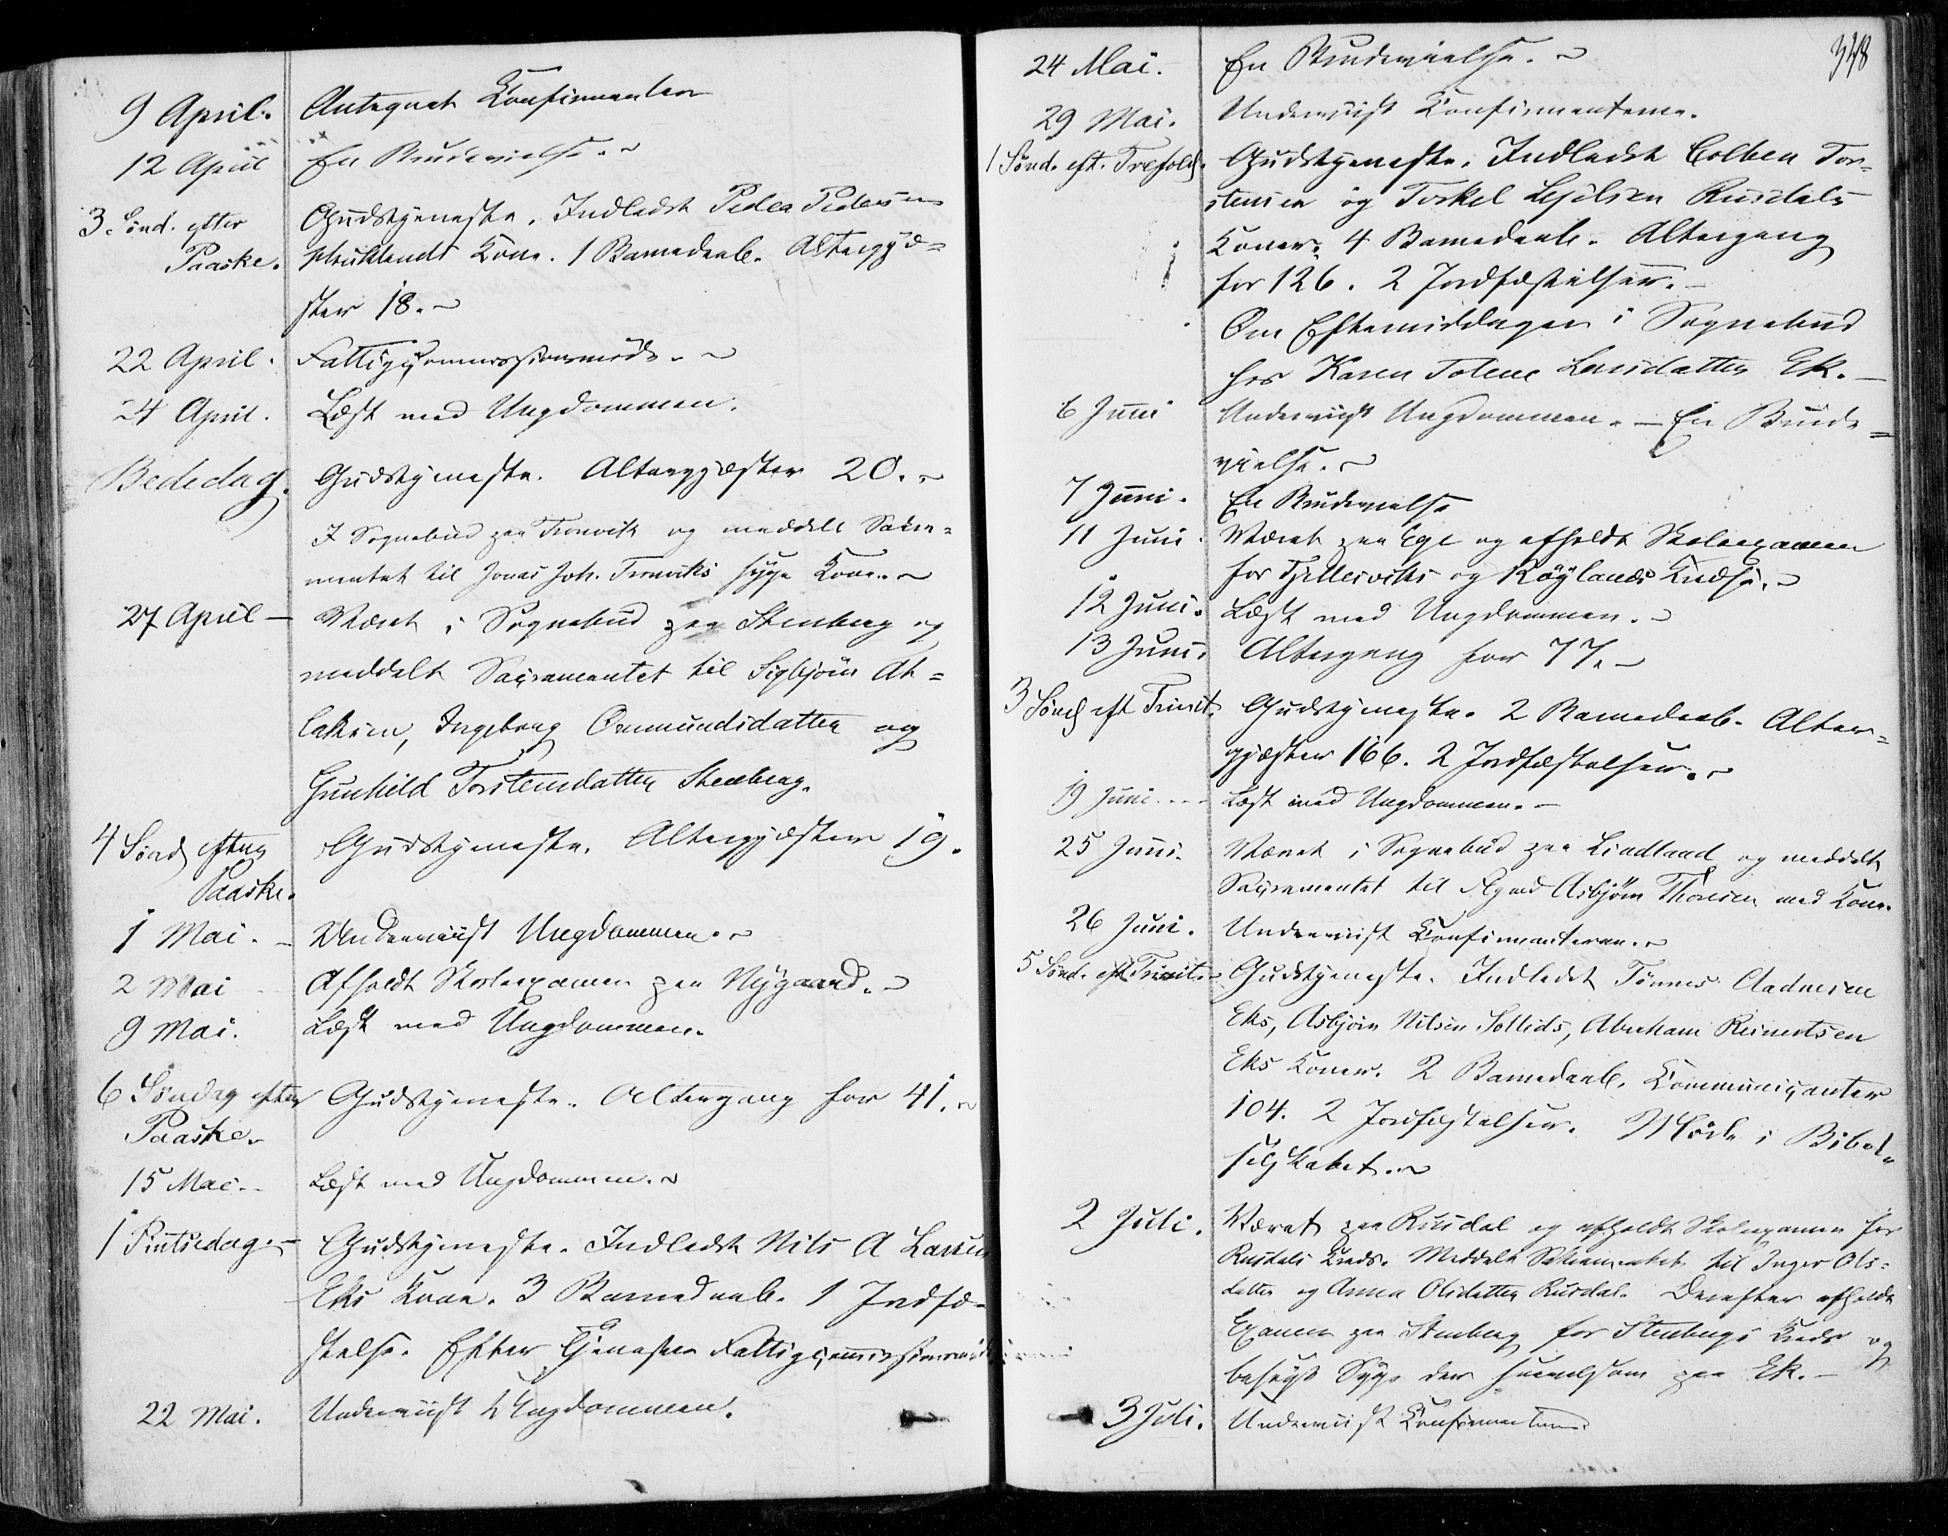 9 April. Antegnet Konfirmanter
12 April En Brudevielse.
3 Sønd. efter Gudstjeneste. Indledet Peder Pedersens
Paaske. Kone. 1 Barnedaab. Altergjæ-
ster 18.
22 April. Fattigcommissionsmøde.
24 April. Læst med Ungdommen.
Bededag. Gudstjeneste. Altergjæster 20.
I Sognebud paa Tronvik og meddelt Sakra-
mentet til Jonas Joh. Tronviks syge Kone.
27 April Været i Sognebud paa Stenberg og
meddelt Sacramentet til Sigbjörn At-
laksen, Ingeborg Ommundsdatter og
Gunhild Torstensdatter Stenberg.
4 Sönd efter Gudstjeneste. Altergjæster 19.
Paaske.
1 Mai. Underviist Ungdommen.
2 Mai Afholdt Skoleexamen paa Nygaard.
9 Mai. Læst med Ungdommen.
6 Søndag efter Gudstjeneste. Altergang for 41.
Paaske.
15 Mai. Læst med Ungdommen.
1 Pintsedag Gudstjeneste. Indledet Nils A Larsen
Eks Kone. 3 Barnedaab. 1 Jordfæ-
stelse. Efter Tjenesten Fattigcommissionsmøde
22 Mai. Underviist Ungdommen.
348
24 Mai. En Brudevielse.
29 Mai. Underviist Konfirmanterne.
1 Sønd. eft. Trefold. Gudstjeneste. Indledet Colben Tor-
stensen og Torkel Kjelsen Rusdals
Koner. 4 Barnedaab. Altergang
for 126. 2 Jordfæstelser.
Om Eftermiddagen i Sognebud
hos Karen Tolene Larsdatter Ek.
6 Juni Underviist Ungdommen. – En Brude-
vielse.
7 Juni. En Brudevielse
11 Juni. Været paa Ege og afholdt Skoleexamen
for Tjellesviks og Röylands Kreds.
12 Juni. Læst med Ungdommen.
13 Juni. Altergang for 77.
3 Sönd eft Trinit. Gudstjeneste. 2 Barnedaab. Alter-
gjæster 166. 2 Jordfæstelser.
19 Juni Læst med Ungdommen.
25 Juni. Været i Sognebud paa Lindland og meddelt
Sacramentet til Asbjörn Thorsen med Kone.
26 Juni. Underviist Konfirmanterne.
5 Sönd. eft Trinit. Gudstjeneste. Indledet Tönnes Aadnesen
Eks, Asbjörn Nilsen Sollids, Abraham Reinertsen
Eks Koner. 2 Barnedaab. Communicanter
104. 2 Jordfæstelser. Møde i Bibel-
selskabet.
2 Juli. Været paa Rusdal og afholdt Skoleexamen for
Rusdals Kreds. Meddelt Sakramentet til Inger Ols-
datter og Anna Olsdatter Rusdal. Derefter afholdt
Examen paa Stenberg for Stenbergs Kreds og
besøgt Syge der saavelsom paa Ek.
3 Juli. Underviist Konfirmanterne.